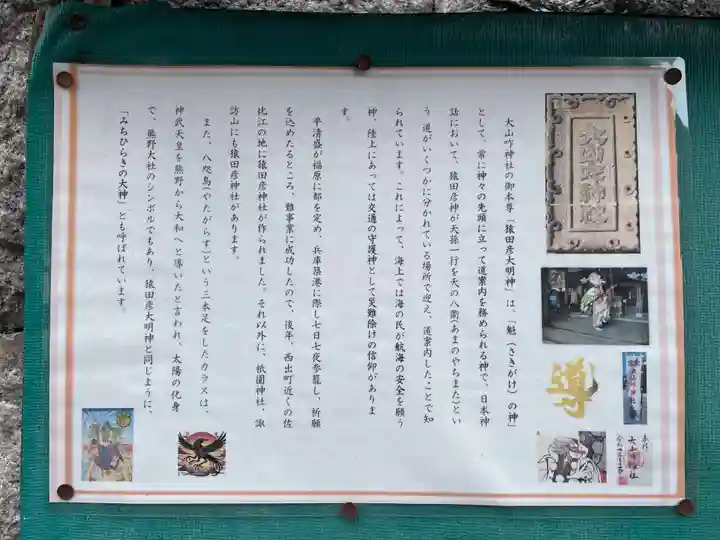 大山咋神社の御本尊「猿田彦大明神」は、「魁(さきがけ)の神」
として、常に神々の先頭に立って道案内を務められる神で、日本神
話において、猿田彦神が天孫一行を天の八衢(あまのやちまた)とい
う道がいくつかに分かれている場所で迎え、道案内したことで知
られています。これによって、海上では海の民が航海の安全を願う
神、陸上にあっては交通の守護神として災難除けの信仰がありま
す。
平清盛が福原に都を定め、兵庫築港に際し七日七夜参籠し、祈願
を込めたるところ、難事業に成功したので、後年、西出町近くの佐
比江の地に猿田彦神社が作られました。それ以外に、祇園神社、諏
訪山にも猿田彦神社があります。
また、八咫烏(やたがらす)という三本足をしたカラスは、
神武天皇を熊野から大和へと導いたと言われ、太陽の化身
で、熊野大社のシンボルでもあり、猿田彦大明神と同じように、
「みちひらきの大神」とも呼ばれています。
大山咋神社
導
奉拝
大山咋神社